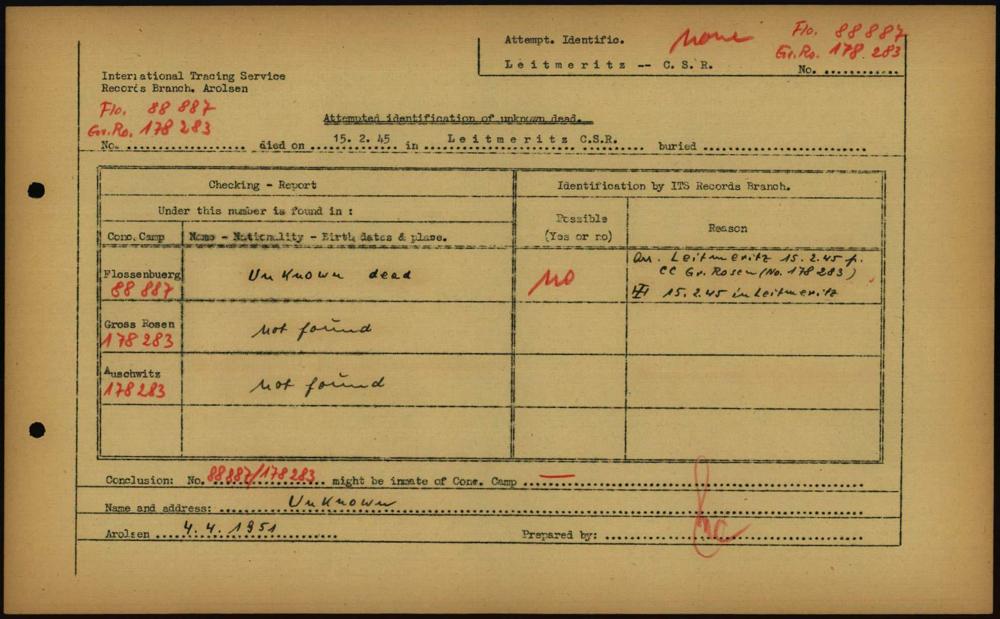 Attempt. Identific. none Flo. 88887
Gr.Ro. 178 283
Leitmeritz -- C.S.R. No. ............
International Tracing Service
Records Branch, Arolsen
Flo. 88 887
Gr.Ro. 178 283
Attempted identification of unknown dead.
No. .................... died on ....15. 2. 45.... in ....Leitmeritz C.S.R..... buried ............................
Checking - Report
Identification by ITS Records Branch.
Under this number is found in :
Possible
(Yes or no)
Reason
Conc. Camp
Name - Nationality - Birth dates & place.
Flossenbuerg
88 887
Unknown dead
no
Arr. Leitmeritz 15.2.45 f.
CC Gr. Rosen (No. 178 283)
15.2.45 in Leitmeritz
Gross Rosen
178 283
not found
Auschwitz
178 283
not found
Conclusion: No. 88887/178 283 might be inmate of Conc. Camp — ............................
Name and address: Unknown
Arolsen 4.4.1951 Prepared by: ............................